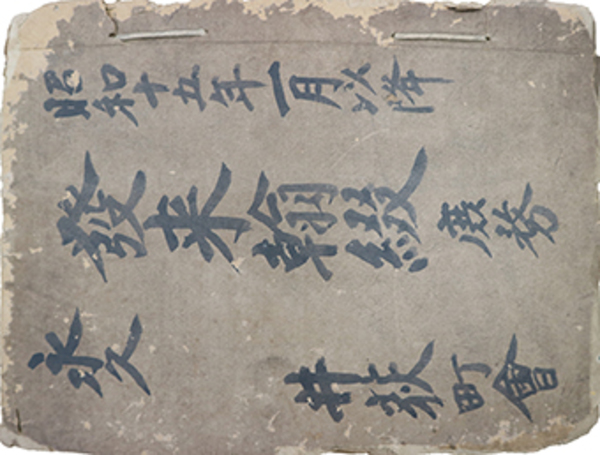 昭和十五年一月以降
發来翰綴 庶務
永久
町會